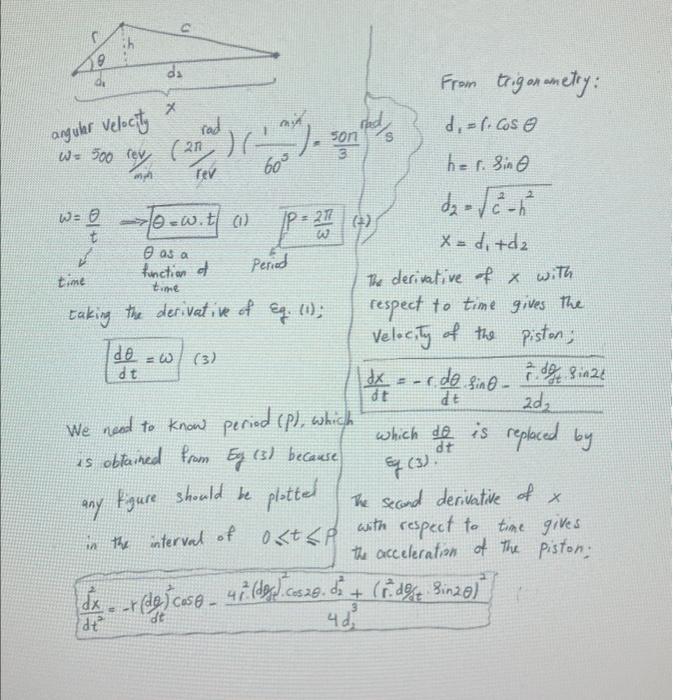 r
c
h
θ
d₁
d₂
x
angular velocity
ω = 500 rev/min (2π rad/rev) (1 min/60 s) = 50π/3 rad/s
ω = θ/t → θ = ω.t (1) P = 2π/ω (2)
time
θ as a
function of
time
Period
taking the derivative of Eq. (1);
dθ/dt = ω (3)
We need to know period (P), which
is obtained from Eq (3) because
any figure should be plotted
in the interval of 0 ≤ t ≤ P
From trigonometry:
d₁ = r. cos θ
h = r. sin θ
d₂ = √(c² - h²)
x = d₁ + d₂
The derivative of x with
respect to time gives the
velocity of the piston;
dx/dt = -r. dθ/dt . sin θ - r². dθ/dt . sin 2θ / 2d₂
which dθ/dt is replaced by
Eq (3).
The second derivative of x
with respect to time gives
the acceleration of the piston:
d²x/dt² = -r (dθ/dt)² cos θ - 4r². (dθ/dt)². cos 2θ. d₂² + (r². dθ/dt . sin 2θ)² / 4d₂³